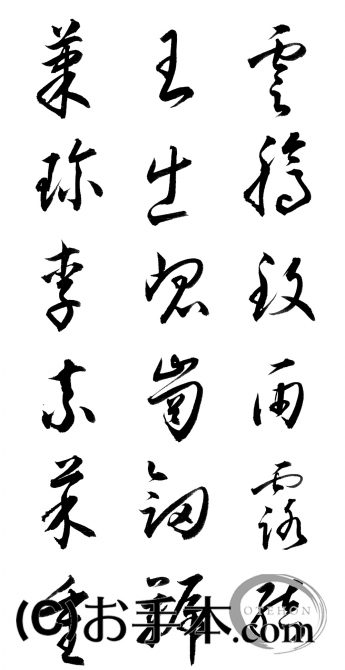 雲騰致雨露結
玉出崑崗釼號
菓珍李柰菜重
(C)お手本.com
OTEHON